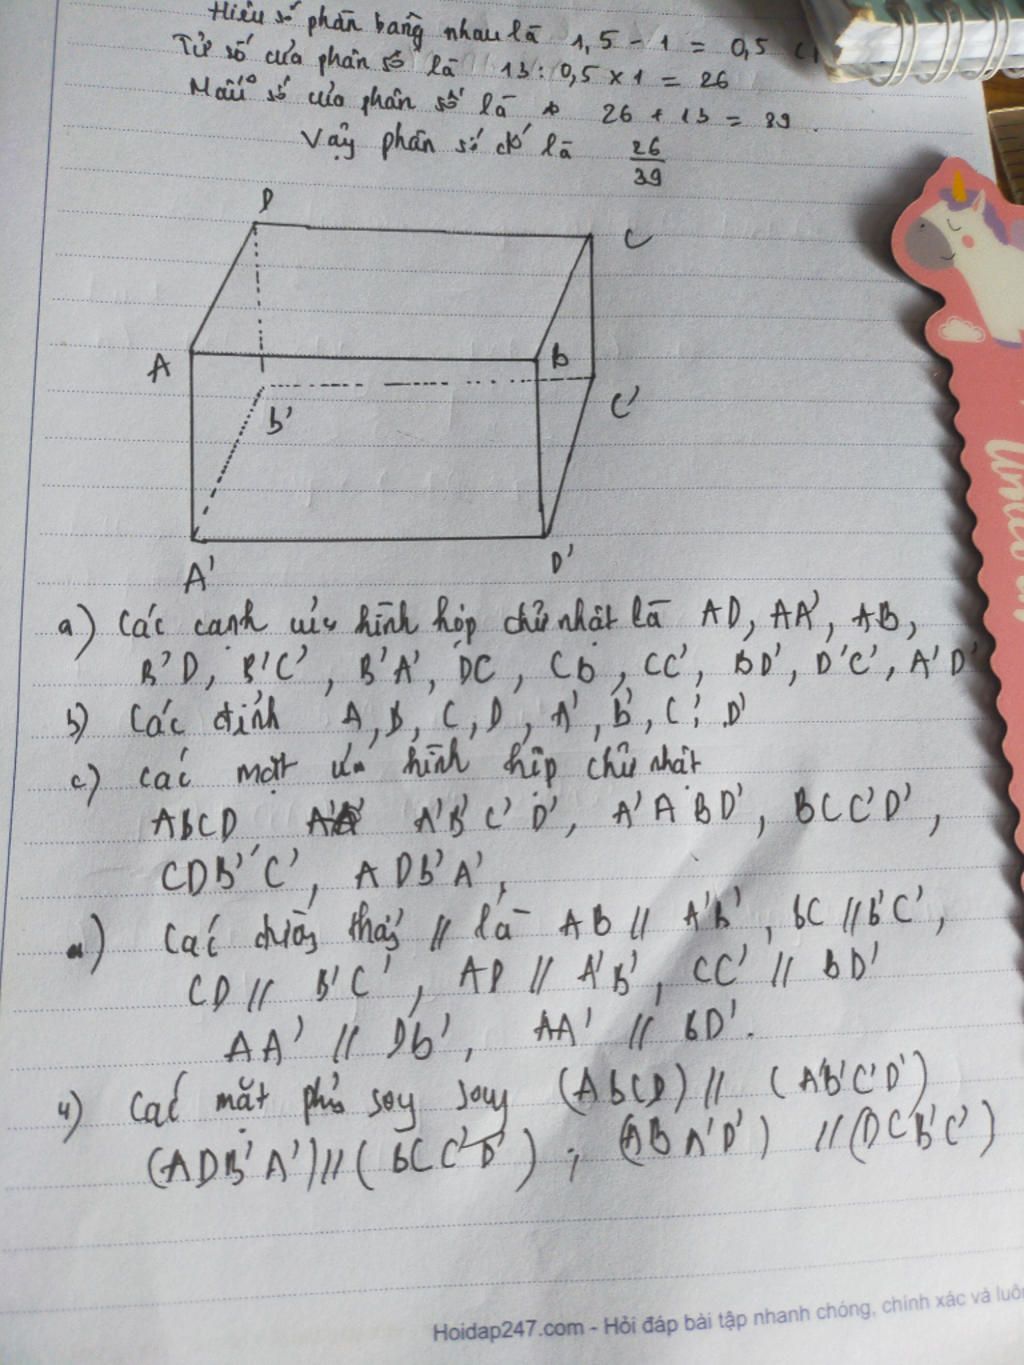 Hiệu số phần bằng nhau là 1,5 - 1 = 0,5 (
Tử số của phân số là 13 : 0,5 x 1 = 26
Mẫu số của phân số là 26 + 13 = 39.
Vậy phân số đó là 26/39
D
C
A
B
B'
C'
A'
D'
a) Các cạnh của hình hộp chữ nhật là AD, AA', AB,
B'D, B'C', B'A', DC, CB, CC', BD', D'C', A'D'
b) Các đỉnh A, B, C, D, A', B', C', D'
c) Các mặt của hình hộp chữ nhật
ABCD A'B'C'D', A'ABD', BCC'D',
CDB'C', ADB'A',
Các đường thẳng // là AB // A'B', BC // B'C',
CD // B'C', AD // A'B', CC' // BD'
AA' // DB', AA' // BD'.
4) Các mặt phẳng soy soy (ABCD) // (A'B'C'D')
(ADB'A') // (BCC'D') ; (ABA'D') // (DCB'C')
Hoidap247.com - Hỏi đáp bài tập nhanh chóng, chính xác và luôn
unicorn